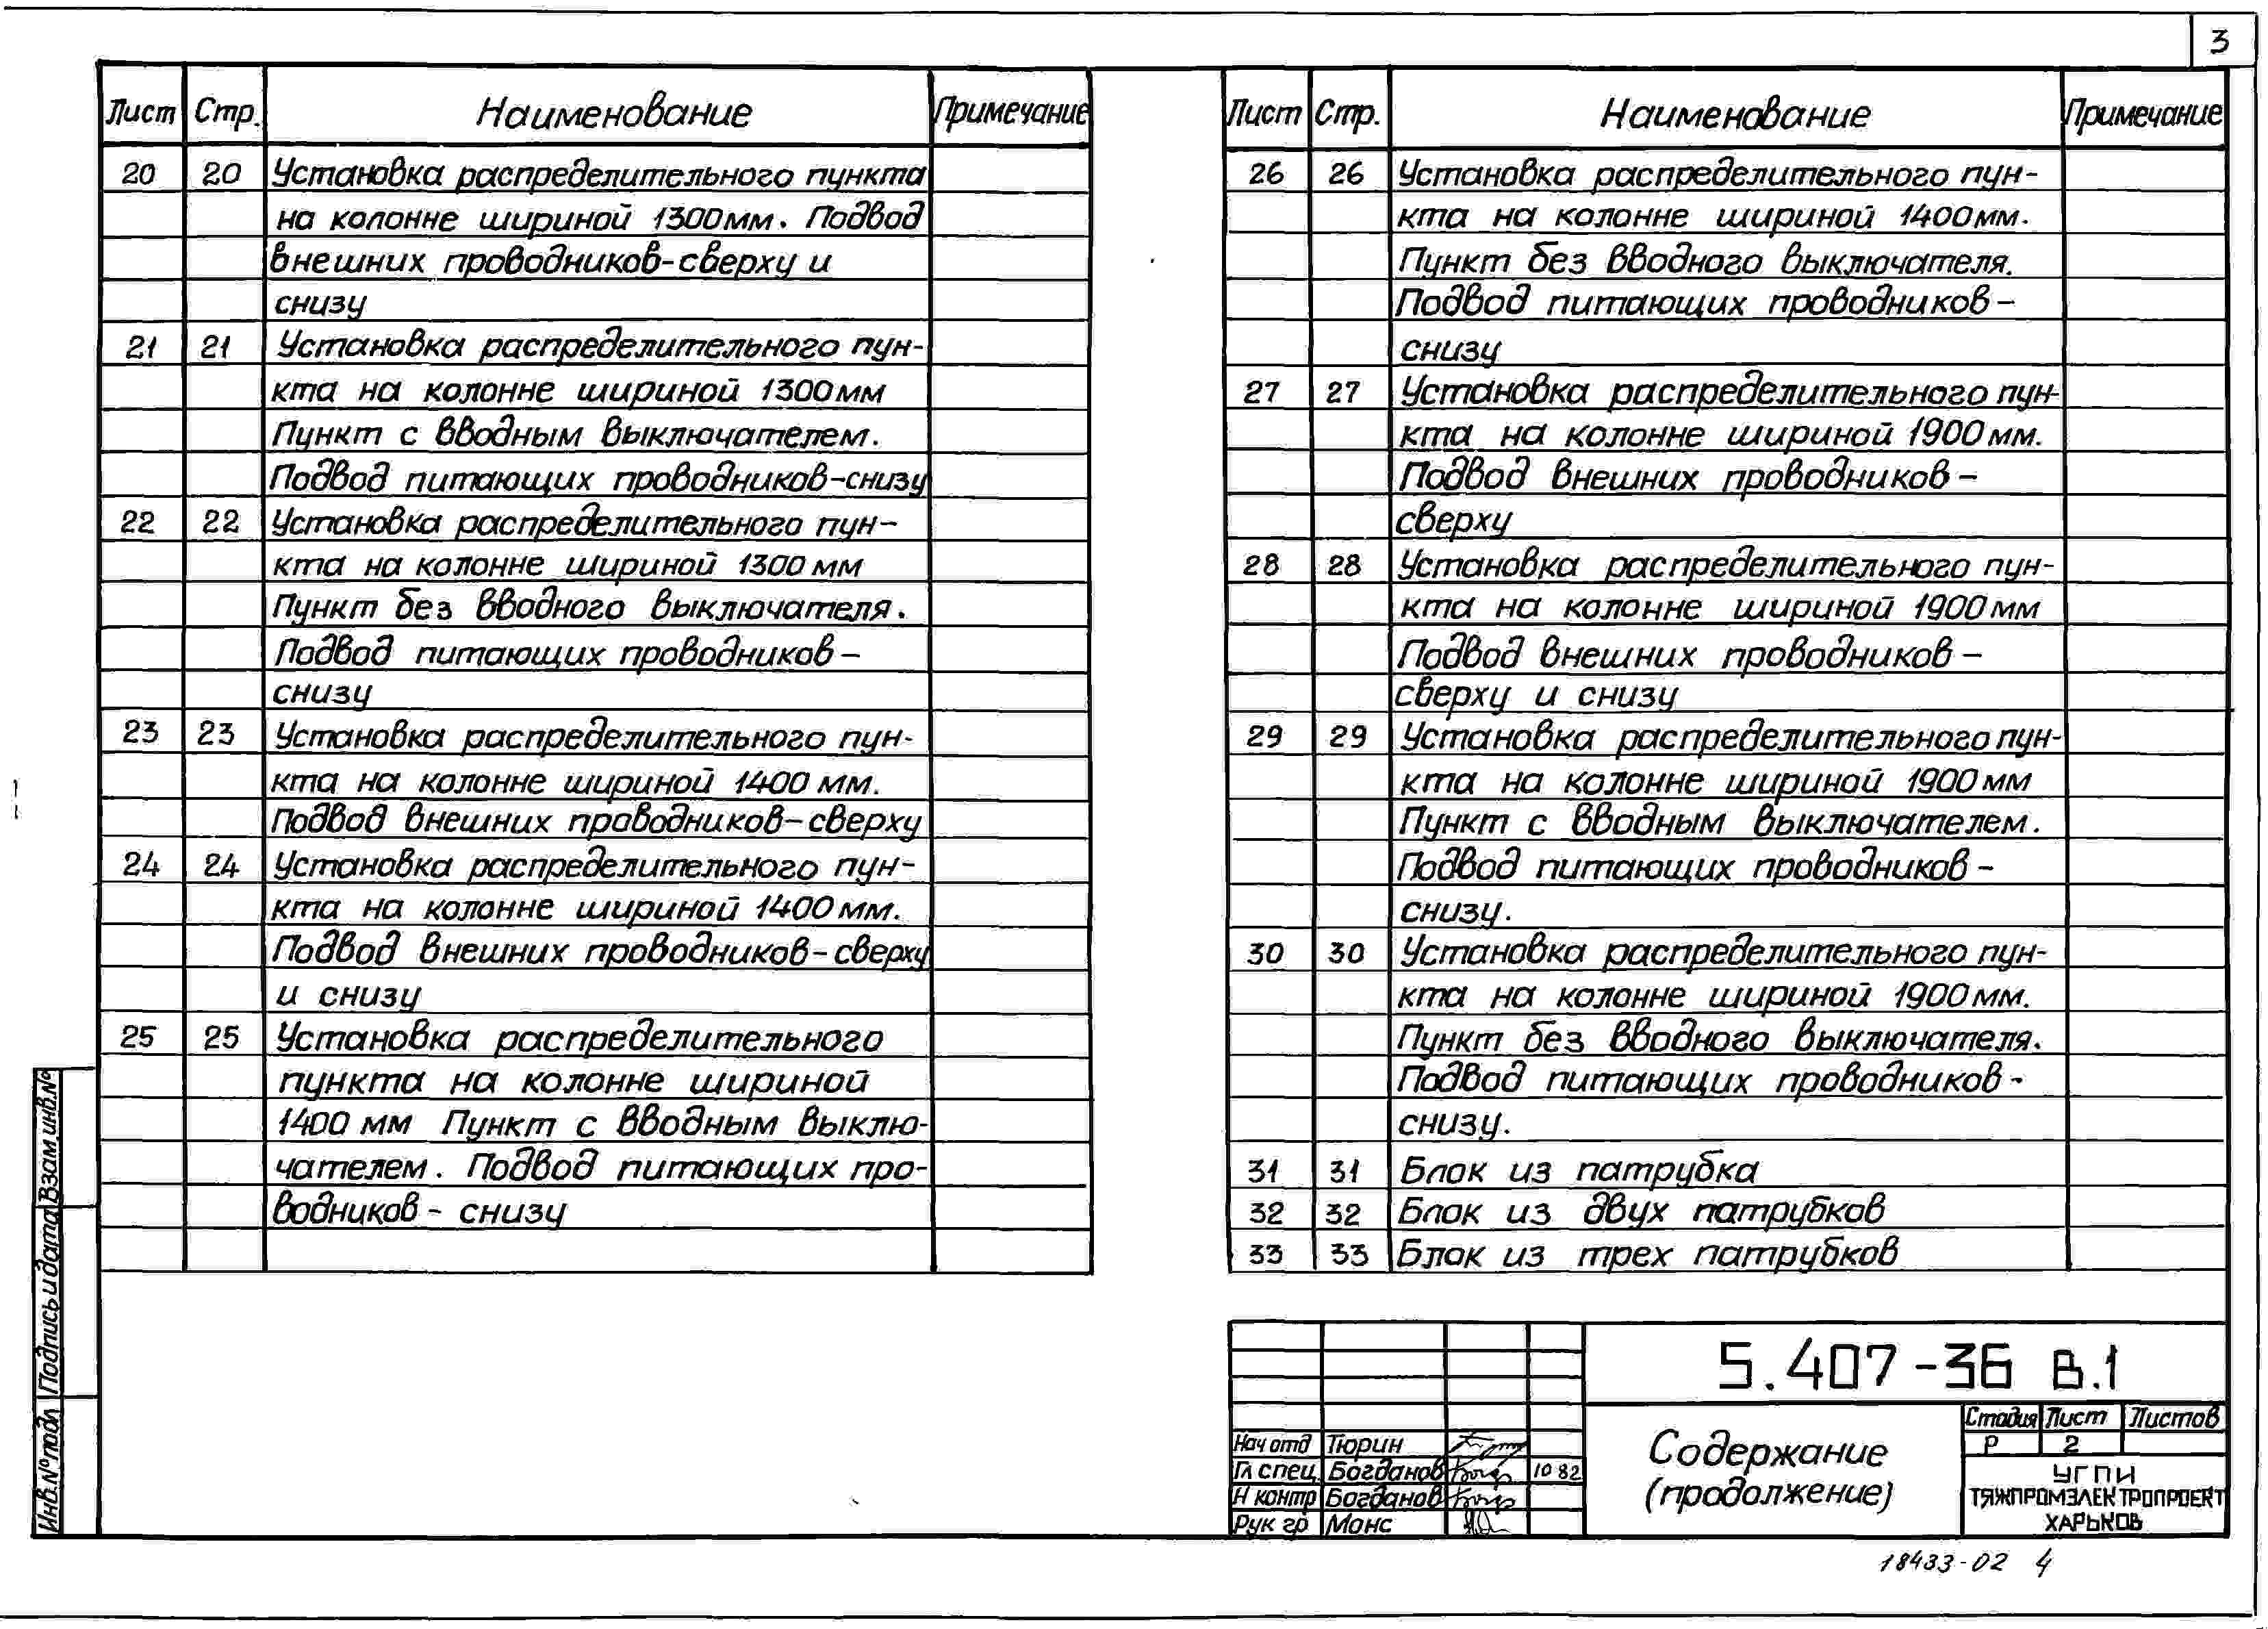 3
Лист Стр. Наименование Примечание
20 20 Установка распределительного пункта
на колонне шириной 1300мм. Подвод
внешних проводников-сверху и
снизу
21 21 Установка распределительного пун-
кта на колонне шириной 1300мм
Пункт с вводным выключателем.
Подвод питающих проводников-снизу
22 22 Установка распределительного пун-
кта на колонне шириной 1300мм
Пункт без вводного выключателя.
Подвод питающих проводников-
снизу
23 23 Установка распределительного пун-
кта на колонне шириной 1400 мм.
Подвод внешних проводников-сверху
24 24 Установка распределительного пун-
кта на колонне шириной 1400мм.
Подвод внешних проводников-сверху
и снизу
25 25 Установка распределительного
пункта на колонне шириной
1400 мм Пункт с вводным выклю-
чателем. Подвод питающих про-
водников - снизу
Лист Стр. Наименование Примечание
26 26 Установка распределительного пун-
кта на колонне шириной 1400мм.
Пункт без вводного выключателя.
Подвод питающих проводников-
снизу
27 27 Установка распределительного пун-
кта на колонне шириной 1900мм.
Подвод внешних проводников-
сверху
28 28 Установка распределительного пун-
кта на колонне шириной 1900мм
Подвод внешних проводников-
сверху и снизу
29 29 Установка распределительного пун-
кта на колонне шириной 1900мм
Пункт с вводным выключателем.
Подвод питающих проводников-
снизу.
30 30 Установка распределительного пун-
кта на колонне шириной 1900мм.
Пункт без вводного выключателя.
Подвод питающих проводников-
снизу.
31 31 Блок из патрубка
32 32 Блок из двух патрубков
33 33 Блок из трех патрубков
Инв.№подл Подпись и дата Взам.инв.№
5.407-36 В.1
Нач отд Тюрин
Гл спец. Богданов 10 82
Н контр Богданов
Рук гр Монс
Содержание
(продолжение)
Стадия Лист Листов
Р 2
УГПИ
ТЯЖПРОМЭЛЕКТРОПРОЕКТ
ХАРЬКОВ
18433-02 4